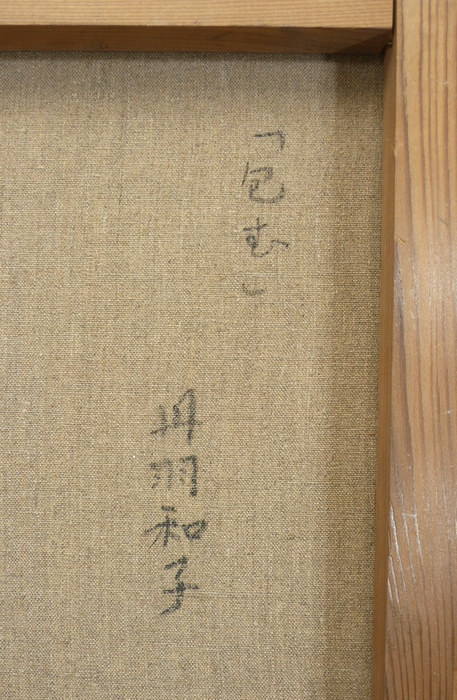 「包む」
丹羽和子